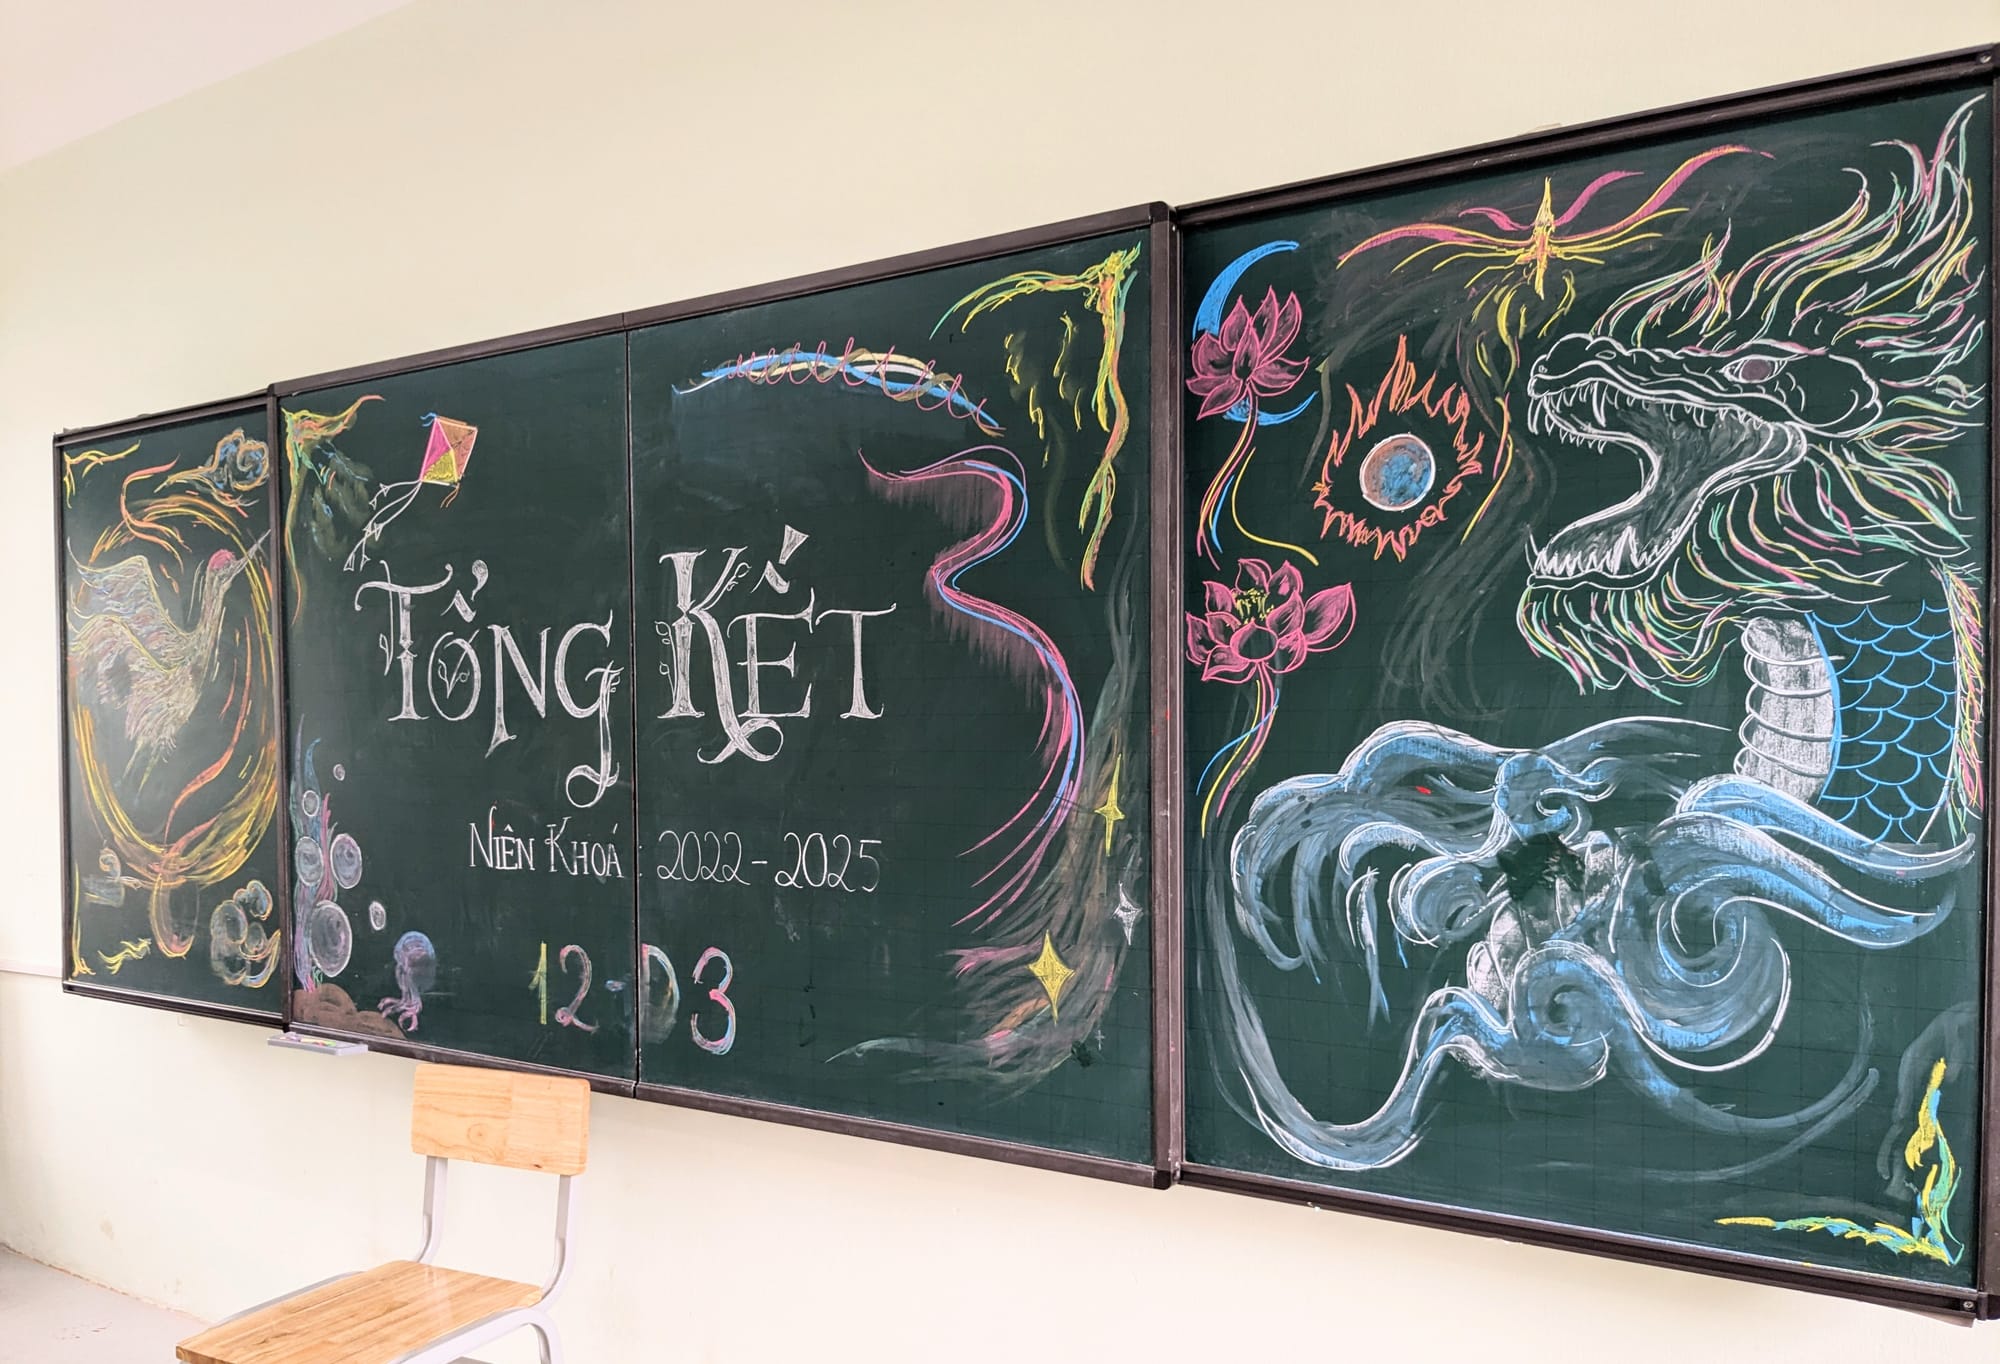 TỔNG KẾT
NIÊN KHOÁ : 2022-2025
12-D3